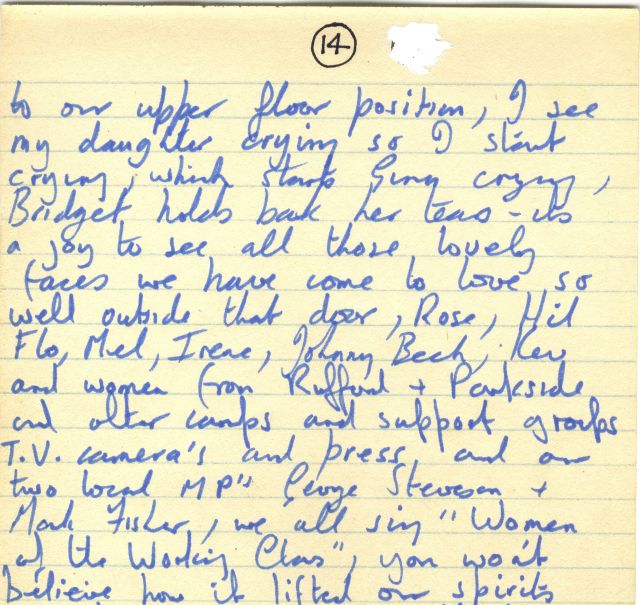 14
to our upper floor position, I see
my daughter crying so I start
crying, which starts Gina crying,
Bridget holds back her tears - its
a joy to see all those lovely
faces we have come to love so
well outside that door, Rose, Hil
Flo, Mel, Irene, Johnny Beech, Kev
and women from Rufford + Parkside
and other camps and support groups
T.V. camera's and press, and our
two local MP's George Stevenson +
Mark Fisher, we all sing "Women
of the Working Class", you won't
believe how it lifted our spirits